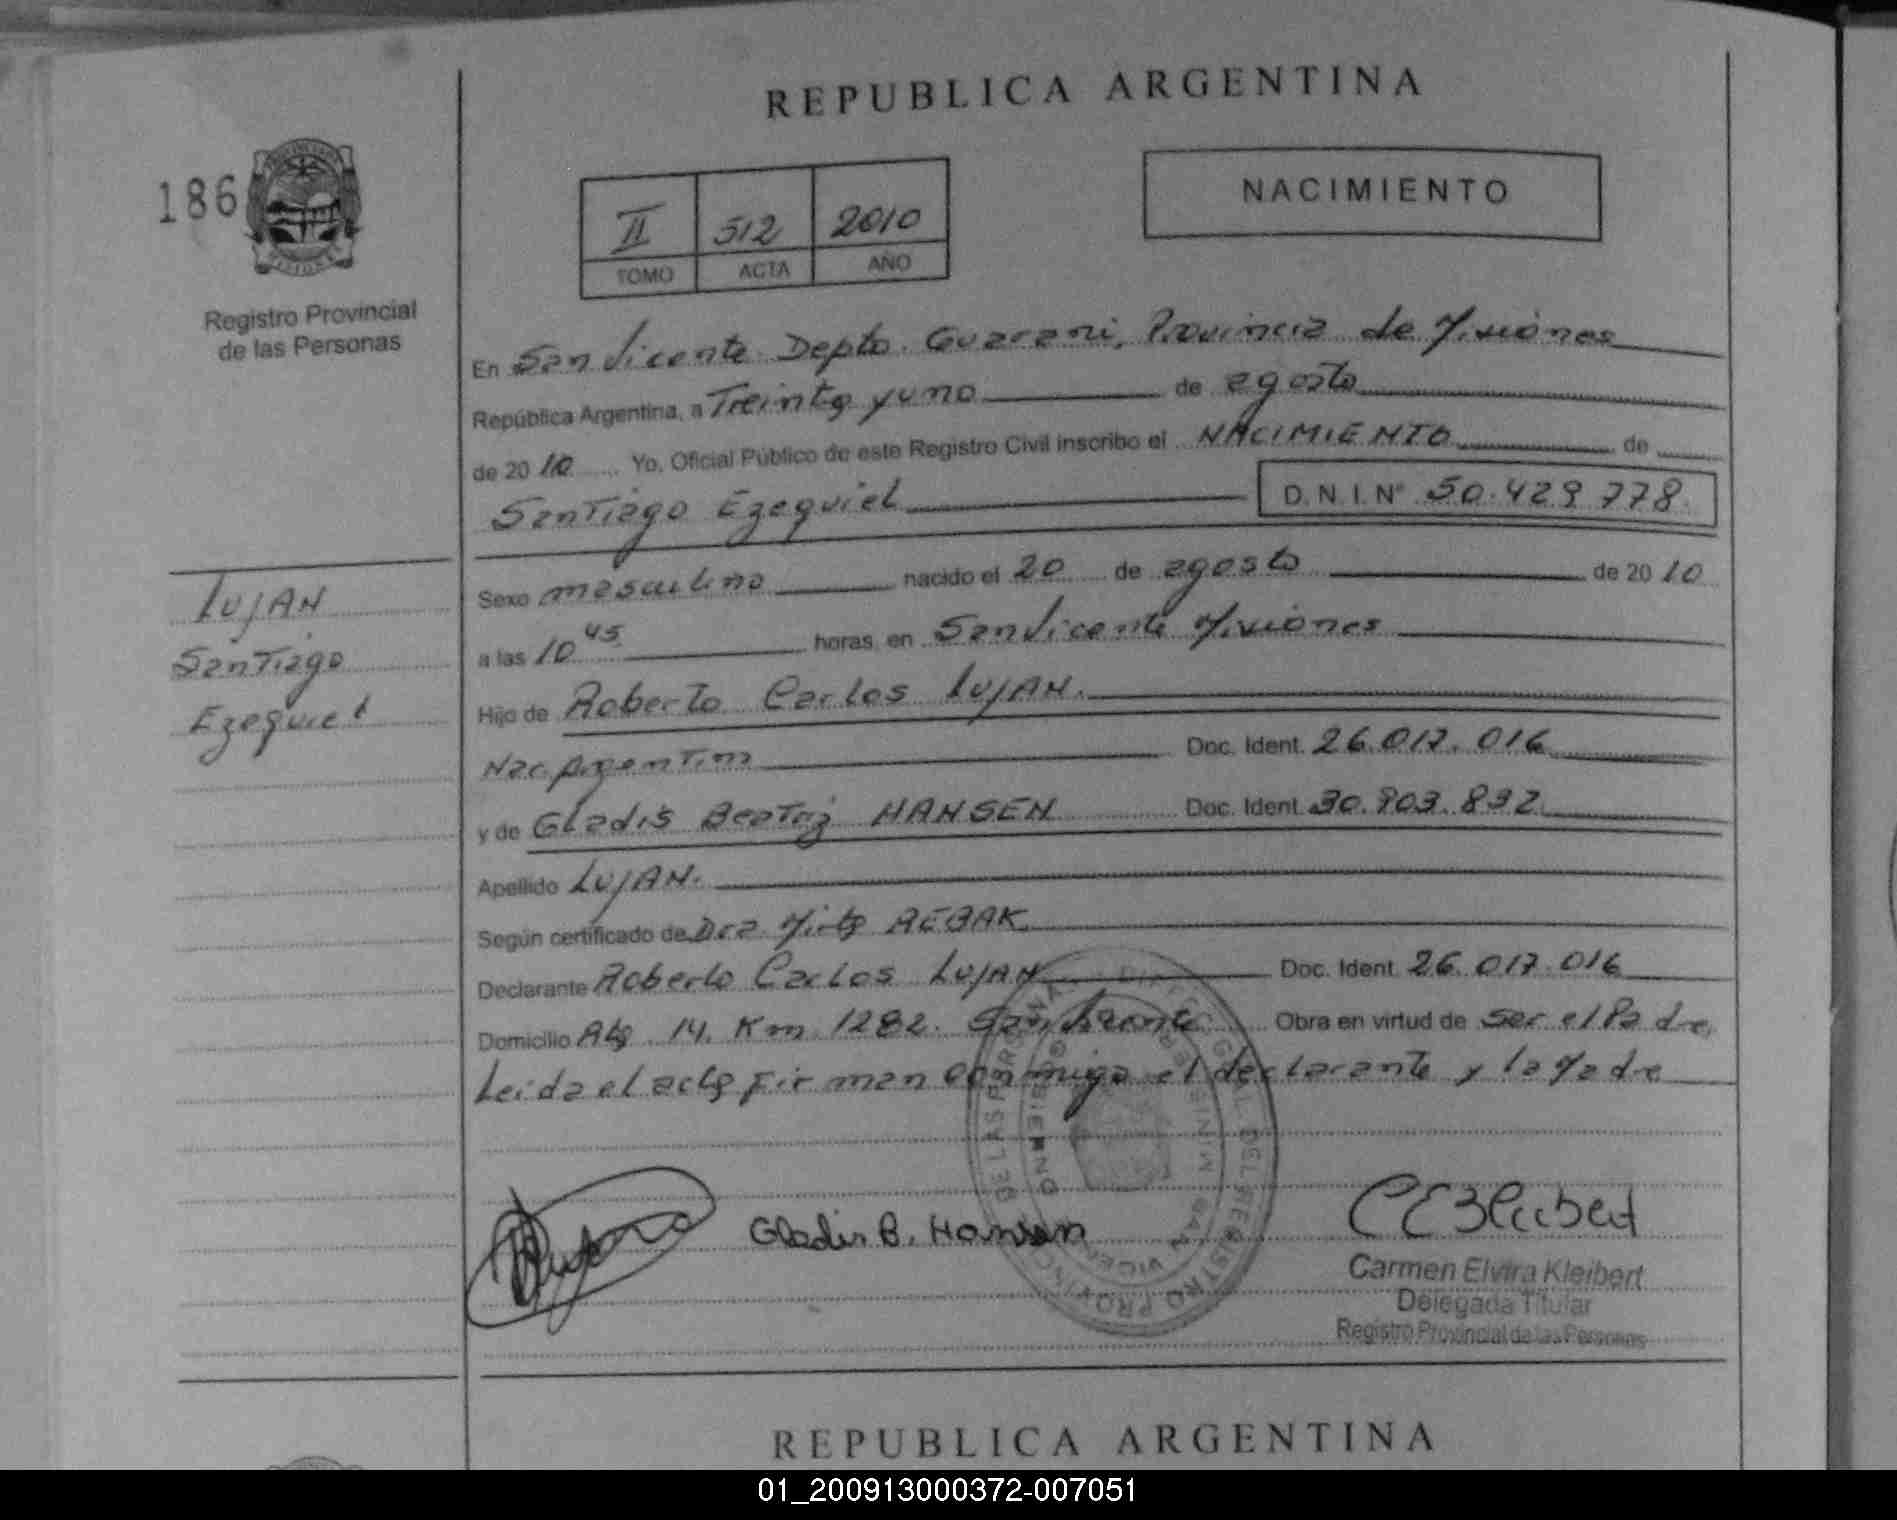 REPUBLICA ARGENTINA
186
II 512 2010
TOMO ACTA AÑO
NACIMIENTO
Registro Provincial
de las Personas
En San Vicente Depto. Guarani, Provincia de Misiones
República Argentina, a Treinta y uno de agosto
de 20 10 Yo, Oficial Público de este Registro Civil inscribo el NACIMIENTO de
Santiago Ezequiel D.N.I.Nº 50.429.778.
LUJAN
Santiago
Ezequiel
Sexo masculino nacido el 20 de agosto de 20 10
a las 10 45 horas, en San Vicente Misiones
Hijo de Roberto Carlos LUJAN.
Nac. Argentino Doc. Ident. 26.017.016
y de Gladis Beatriz HANSEN Doc. Ident. 30.903.832
Apellido LUJAN.
Según certificado de Dra Mirta REBAK
Declarante Roberto Carlos LUJAN Doc. Ident. 26.017.016
Domicilio Rta. 14. Km 1282. San Vicente Obra en virtud de ser el Padre,
Leida el acta firman conmigo el declarante y la Madre
Gladis B. Hansen
Carmen Elvira Kleibert
Delegada Titular
Registro Provincial de las Personas
REPUBLICA ARGENTINA
01_200913000372-007051